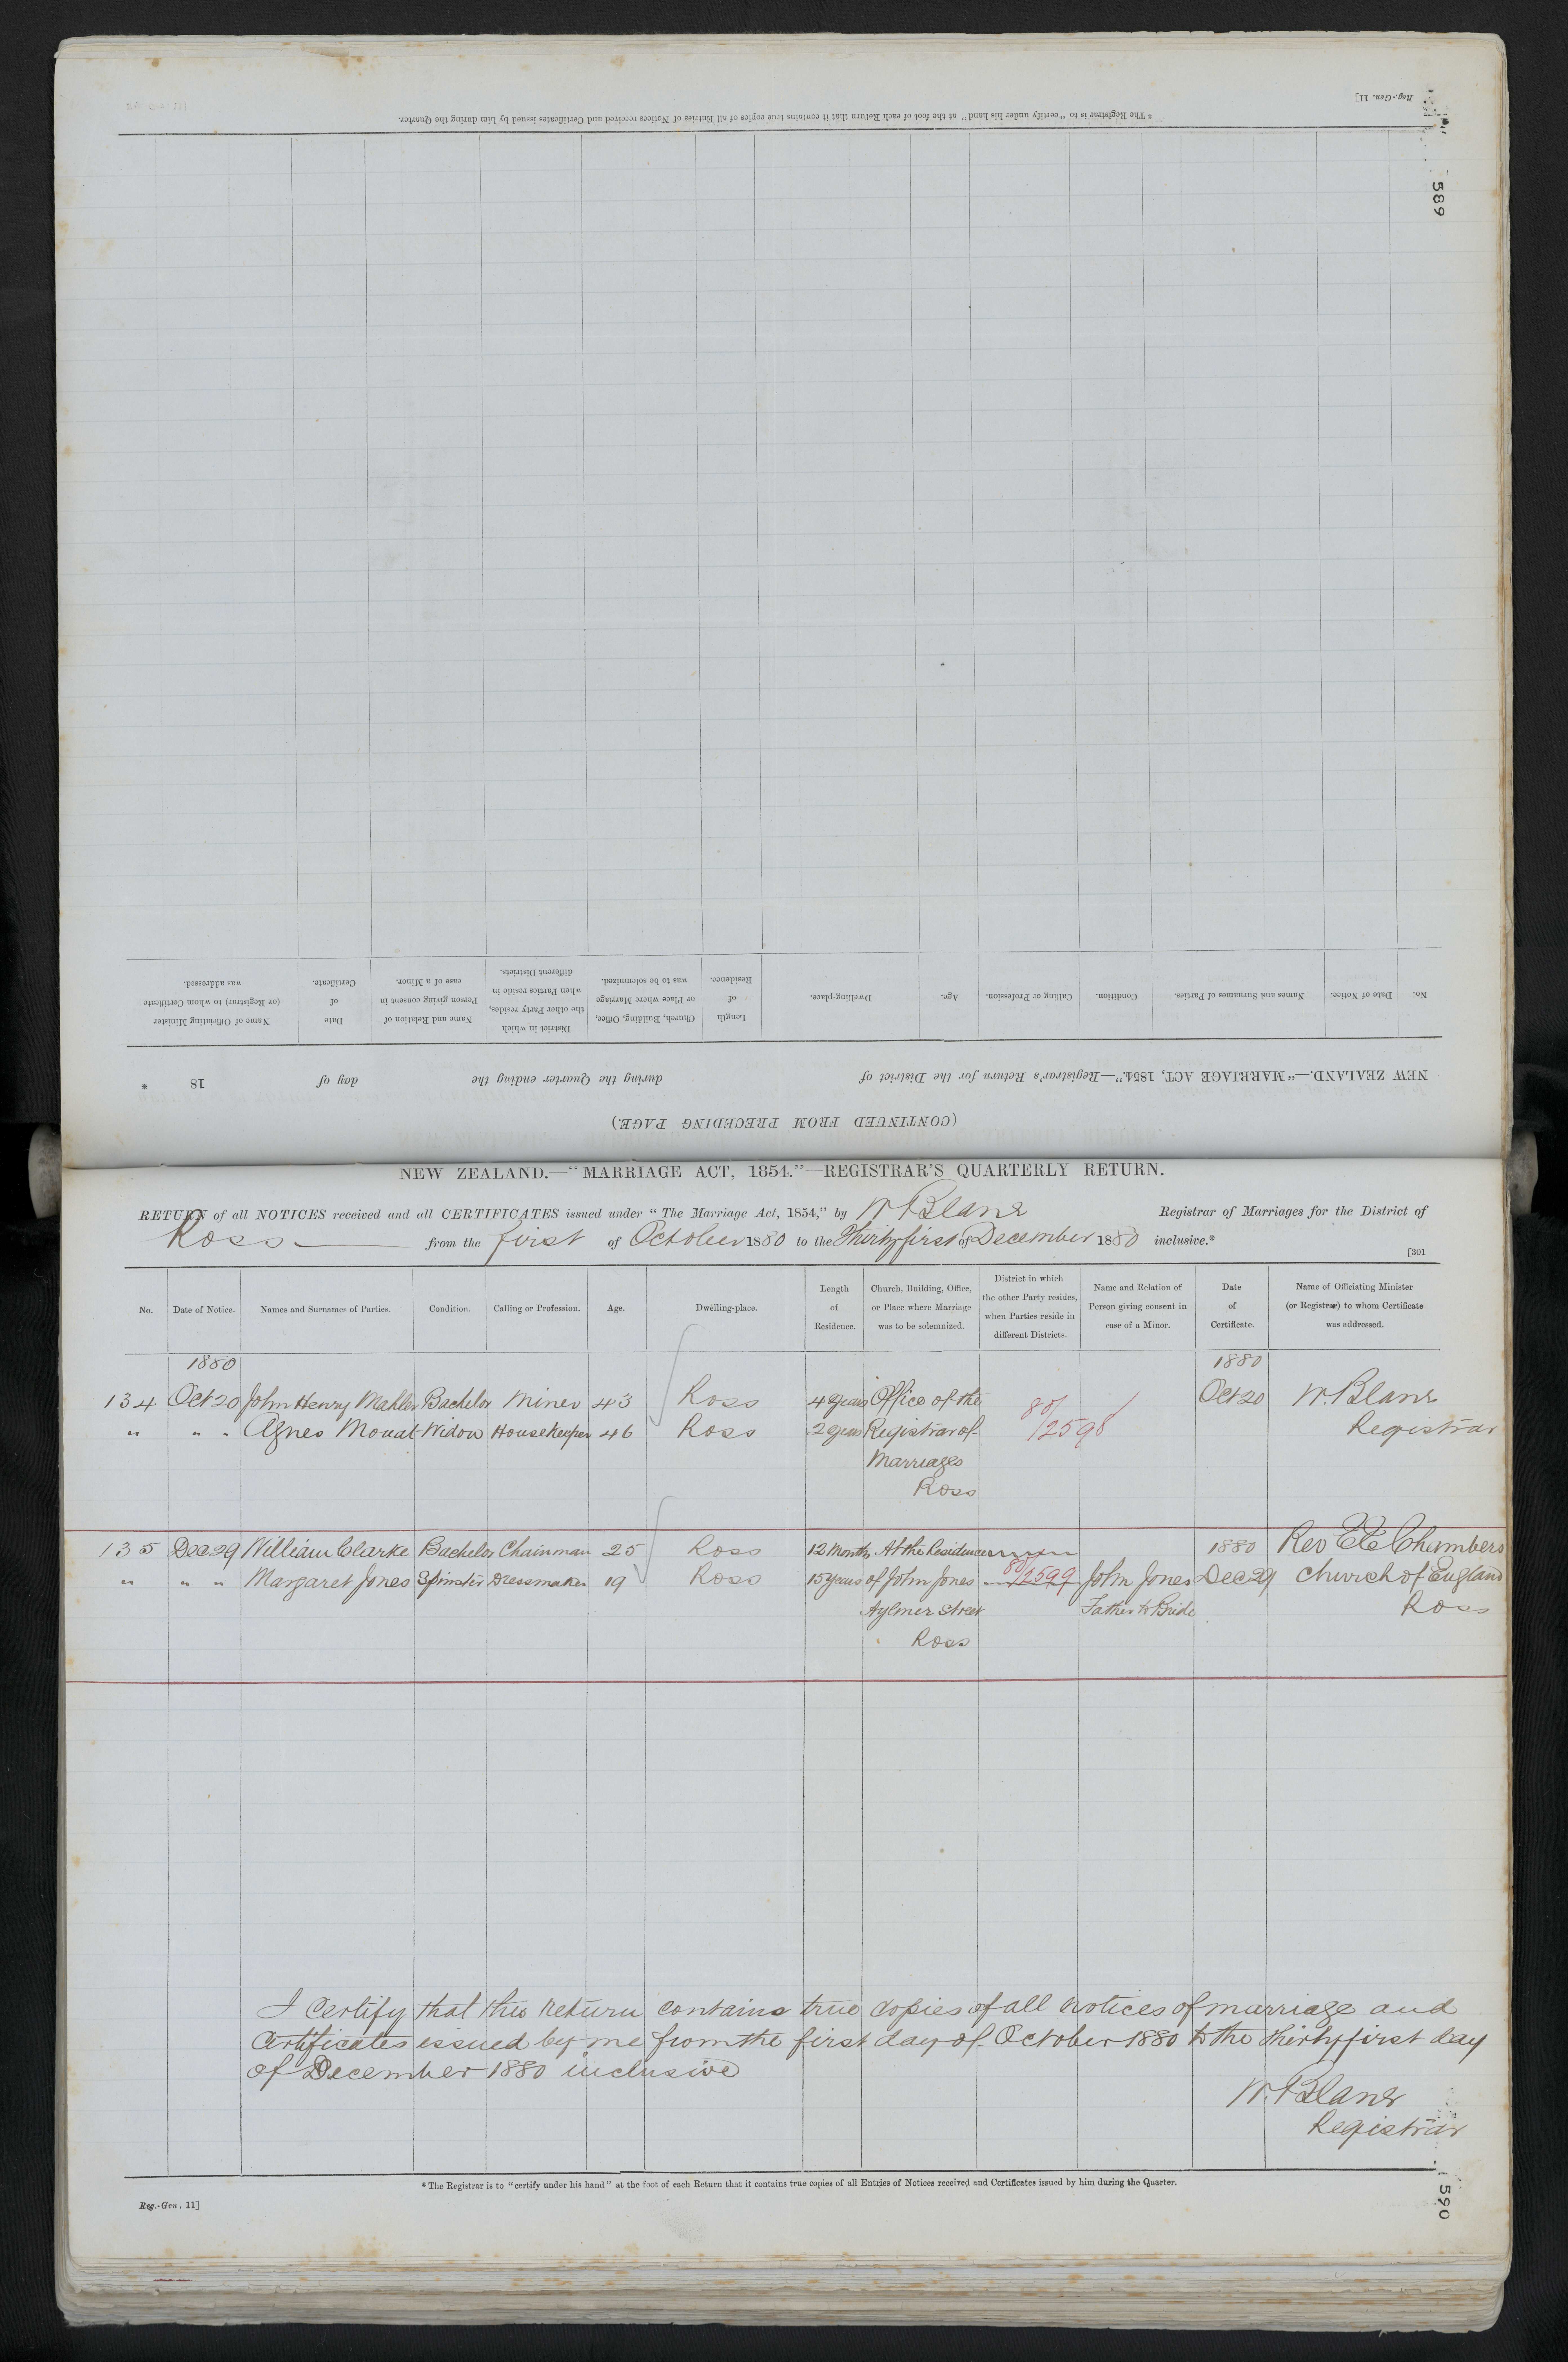 Reg.-Gen. 11]
* The Registrar is to "certify under his hand" at the foot of each Return that it contains true copies of all Entries of Notices received and Certificates issued by him during the Quarter.
589
No. Date of Notice. Names and Surnames of Parties. Condition. Calling or Profession. Age. Dwelling-place. Length of Residence. Church, Building, Office, or Place where Marriage was to be solemnized. District in which the other Party resides, when Parties reside in different Districts. Name and Relation of Person giving consent in case of a Minor. Date of Certificate. Name of Officiating Minister (or Registrar) to whom Certificate was addressed.
NEW ZEALAND.—"MARRIAGE ACT, 1854."—Registrar's Return for the District of during the Quarter ending the day of 18 *
(CONTINUED FROM PRECEDING PAGE.)
NEW ZEALAND.—"MARRIAGE ACT, 1854."—REGISTRAR'S QUARTERLY RETURN.
RETURN of all NOTICES received and all CERTIFICATES issued under "The Marriage Act, 1854," by Registrar of Marriages for the District of
Ross from the first of October 1880 to the Thirty first of December 1880 inclusive.*
[301
No. Date of Notice. Names and Surnames of Parties. Condition. Calling or Profession. Age. Dwelling-place. Length of Residence. Church, Building, Office, or Place where Marriage was to be solemnized. District in which the other Party resides, when Parties reside in different Districts. Name and Relation of Person giving consent in case of a Minor. Date of Certificate. Name of Officiating Minister (or Registrar) to whom Certificate was addressed.
1880 1880
134 Oct 20 John Henry Mahler Bachelor Miner 43 Ross 4 years Office of the 80/ Oct 20
" " " Agnes Mouat Widow Housekeeper 46 Ross 2 years Registrar of /2598 Registrar
Marriages
Ross
135 Dec 29 William Clarke Bachelor Chainman 25 Ross 12 Months At the Residence 1880 Rev Chambers
" " " Margaret Jones Spinster Dressmaker 19 Ross 15 years of John Jones 80/2599 John Jones Dec 29 Church of England
Aylmer Street Father to Bride Ross
Ross
I Certify that this Return contains true copies of all notices of marriage and
Certificates issued by me from the first day of October 1880 to the thirty first day
of December 1880 inclusive
Registrar
* The Registrar is to "certify under his hand" at the foot of each Return that it contains true copies of all Entries of Notices received and Certificates issued by him during the Quarter.
Reg.-Gen. 11]
590